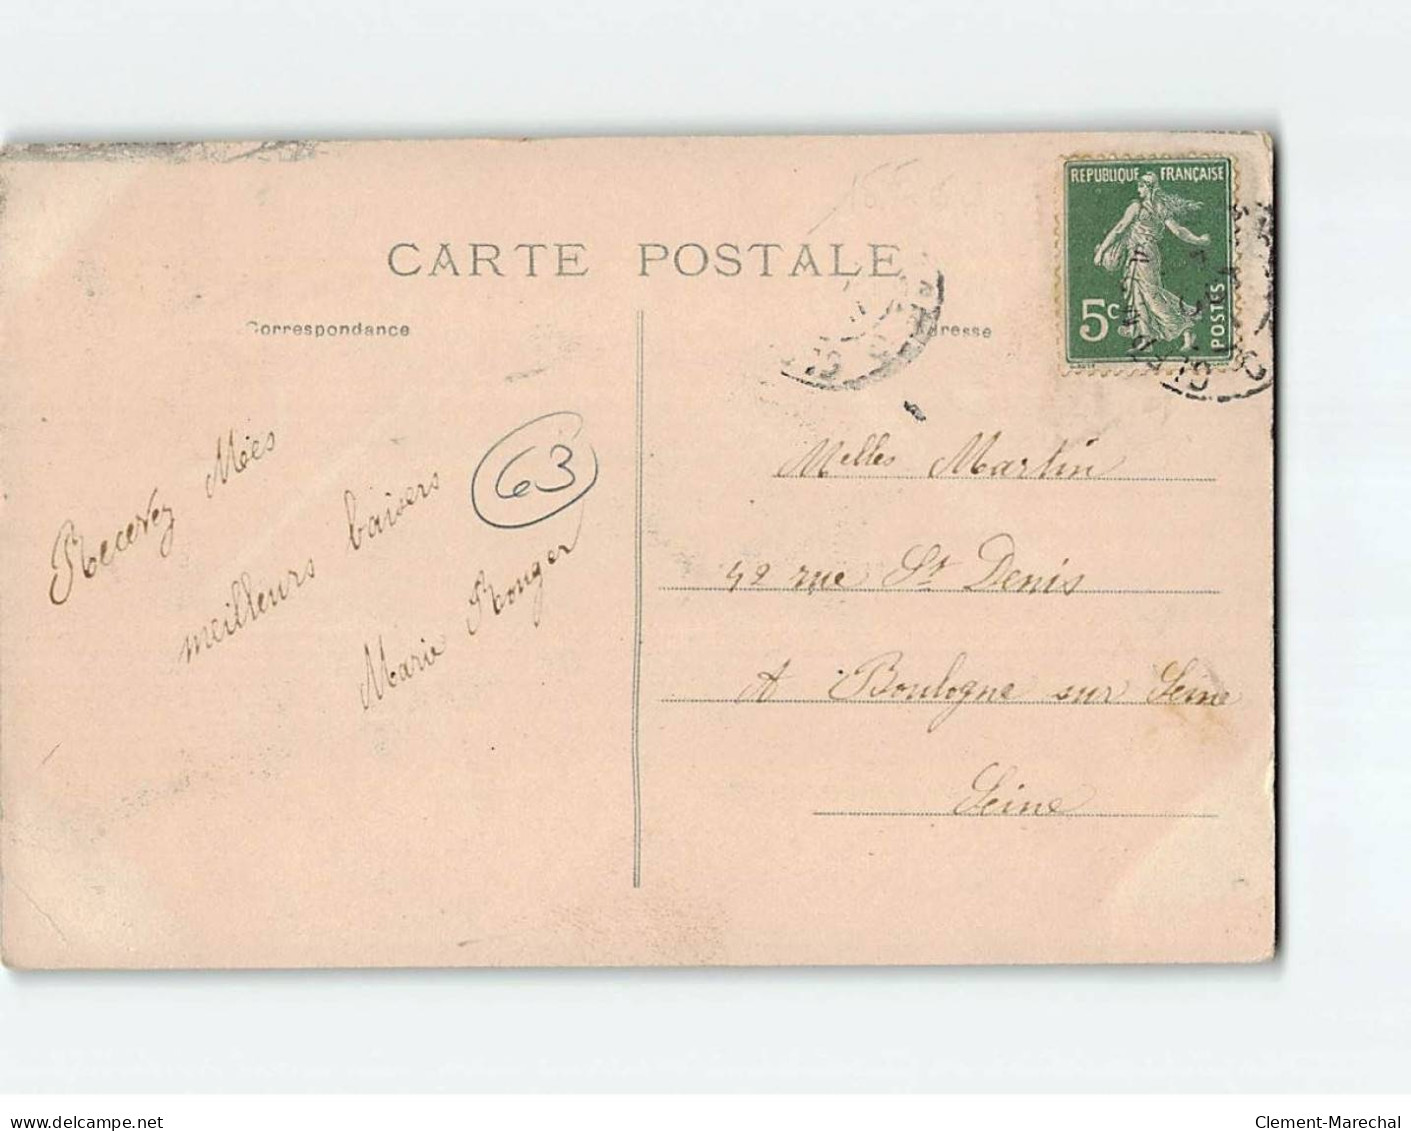 CARTE POSTALE
Correspondance
REPUBLIQUE FRANÇAISE
5c
POSTES
Recevez Mes
meilleurs baisers
Marie Rouger
63
Melles Martin
42 rue St Denis
A Boulogne sur Seine
Seine
www.delcampe.net
Clement-Marechal